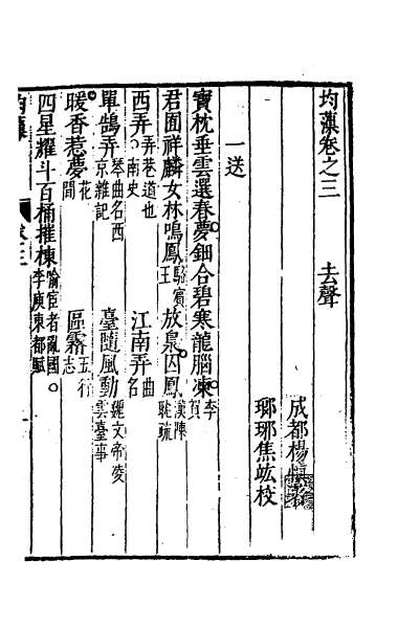 均藻卷之三 去聲
成都楊
瑯琊焦竑校
一送
寶枕垂雲選春夢鈿合碧寒龍腦凍李賀
君囿祥麟女林鳴鳳駱賓王 放梟囚鳳漢陳耽疏
西弄弄巷道也南史 江南弄曲名
單鵠弄琴曲名西京雜記 臺隨風動魏文帝凌雲臺事
暖香惹夢花間 區霧五行志
四星耀斗百桶摧棟喻宦者亂國李庾東都賦